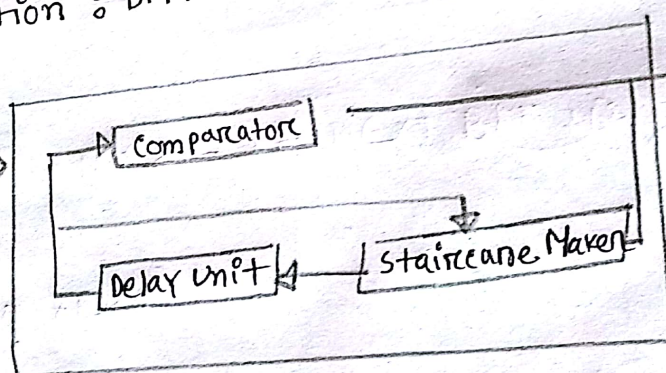 tion :
Comparator
Delay Unit
Staircase Maker